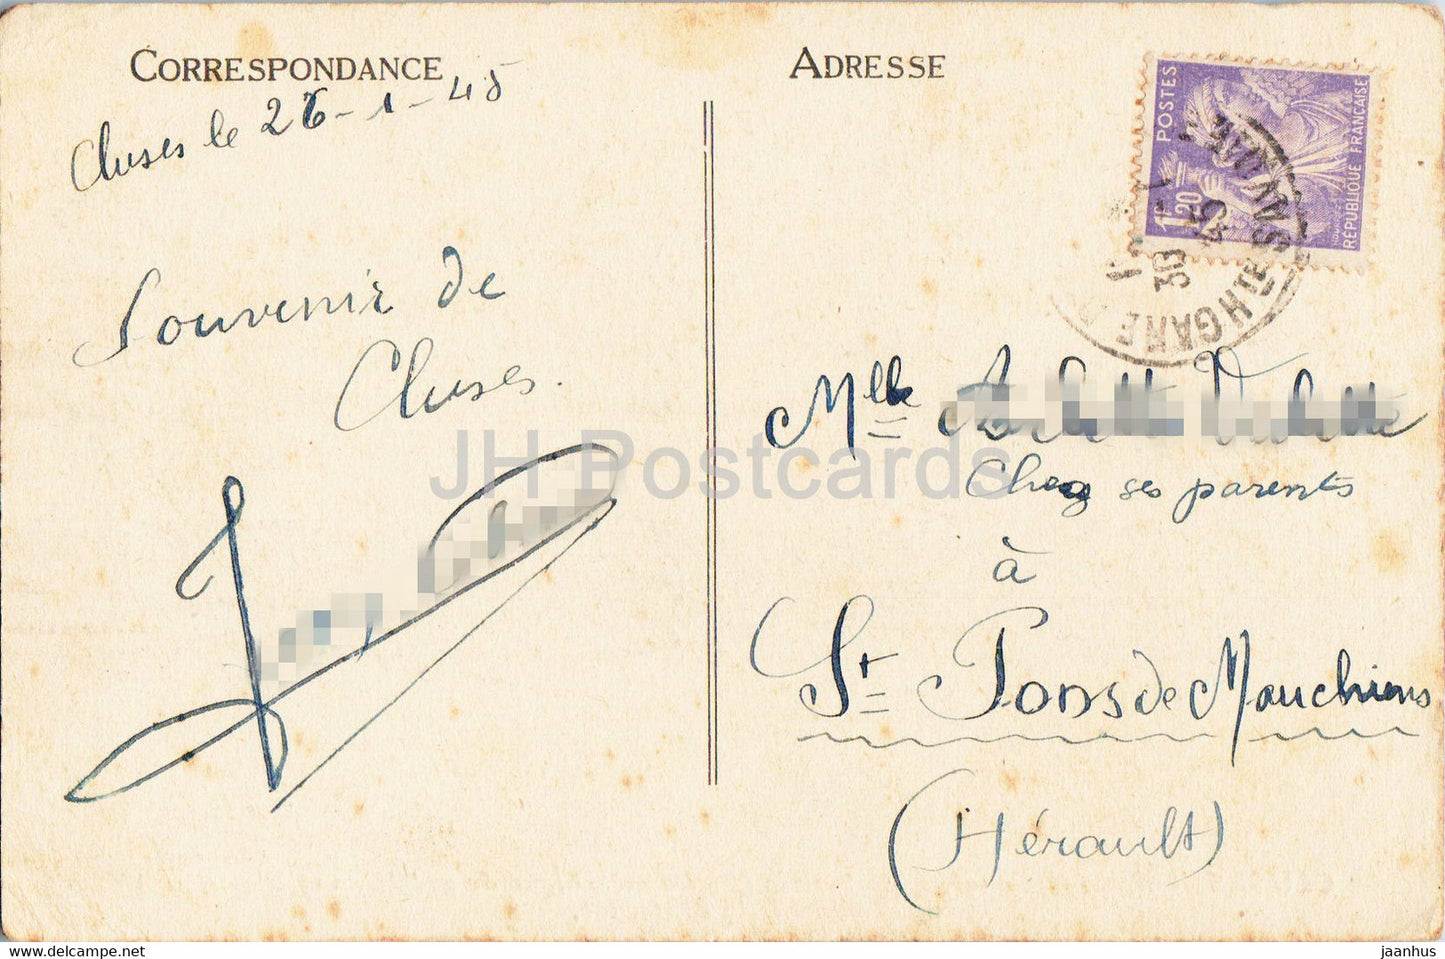 CORRESPONDANCE
Cluses le 26-1-45
Souvenir de
Cluses.
ADRESSE
POSTES
1F20
RÉPUBLIQUE FRANÇAISE
GARE
30
45
Mlle
Chez ses parents
à
St Pons de Mauchiens
(Hérault)
JH Postcards
www.delcampe.net
jaanhus